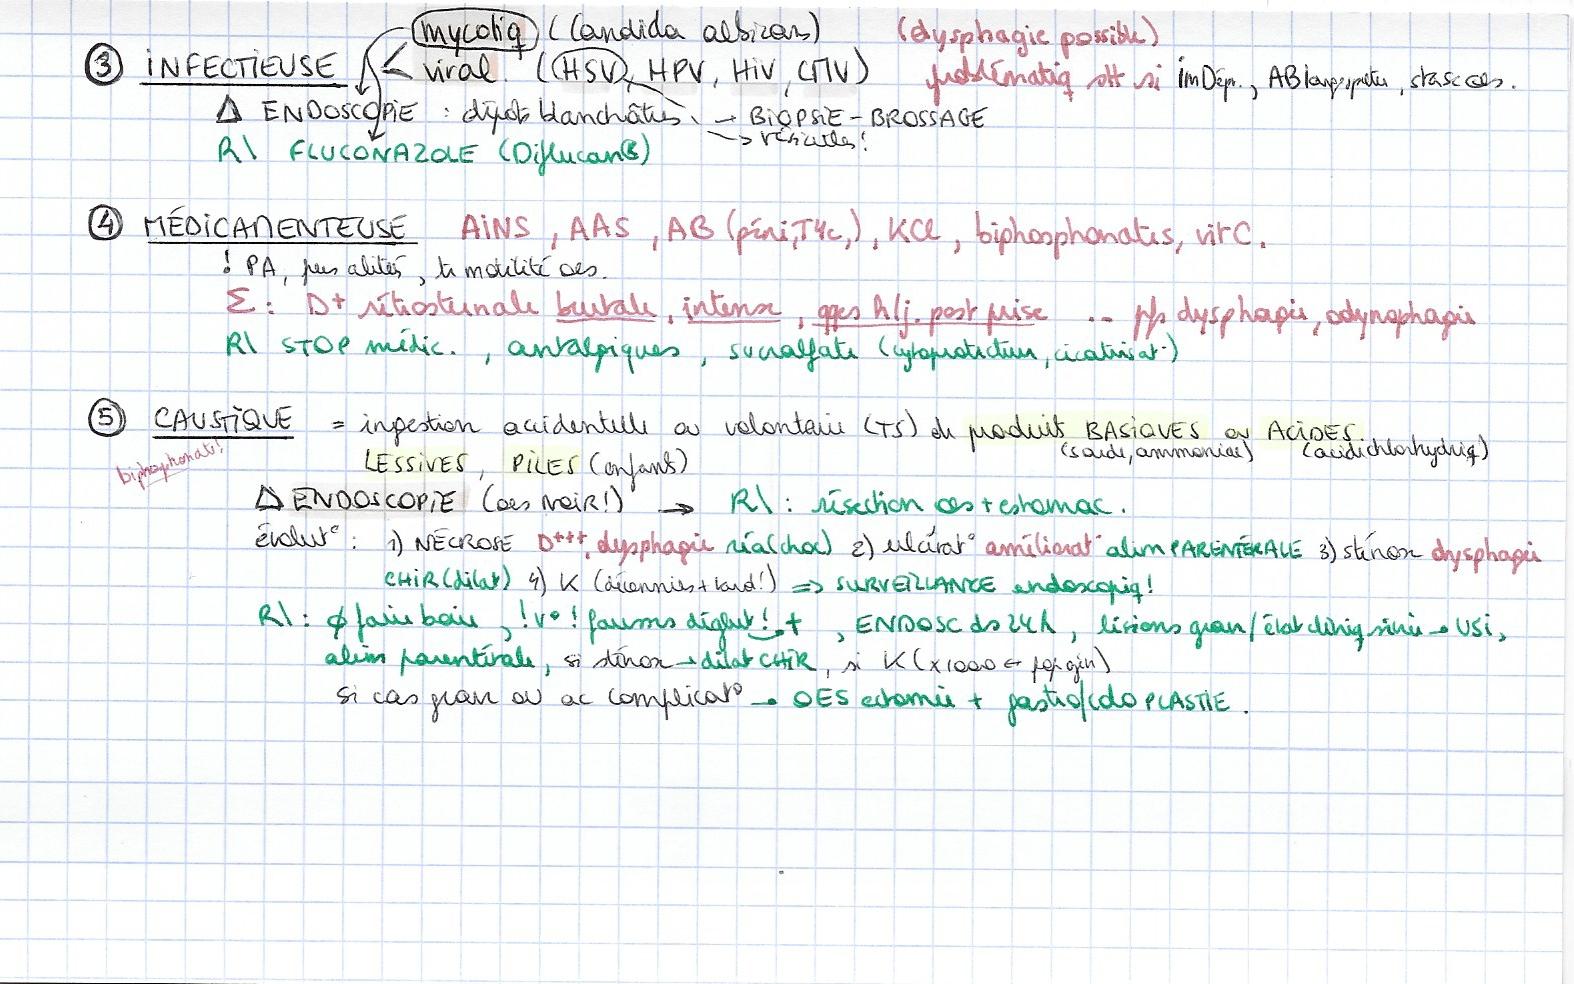 mycotiq (Candida albicans) (dysphagie possible)
③ INFECTIEUSE viral (HSV, HPV, HIV, CMV) problématiq slt si imDépr., AB large spectre, stase oes.
Δ ENDOSCOPIE : dépôts blanchâtres → BIOPSIE - BROSSAGE
→ vésicules!
R\ FLUCONAZOLE (Diflucan®)
④ MÉDICAMENTEUSE AINS, AAS, AB (péni, T4c,), KCl, biphosphonates, vit C.
! PA, pers alitées, tr motilité oes.
Σ : D+ rétrosternale brutale, intense, qqes h/j. post prise .. pfs dysphagie, odynophagie
R\ STOP médic., antalpiques, sucralfate (cytoprotecteur, cicatrisat°)
⑤ CAUSTIQUE = ingestion accidentelle ou volontaire (TS) de produits BASIQUES ou ACIDES.
(soude, ammoniac) (acide chlorhydriq)
biphosphonates! LESSIVES, PILES (enfants)
Δ ENDOSCOPIE (oes NOIR!) → R\ : résection oes + estomac.
évolut° : 1) NÉCROSE D+++, dysphagie réa (choc) 2) ulcérat° améliorat° alim PARENTÉRALE 3) sténose dysphagie
CHIR (dilat) 4) K (décennies + tard!) => SURVEILLANCE endoscopiq!
R\ : φ faire boire, ! v° ! fausses déglut! +, ENDOSC ds 24h, lésions graves/état cliniq sévère → USI,
alim parentérale, si sténose → dilat CHIR, si K (x1000 ← pop gén)
si cas grave ou ac complicat° → OESectomie + gastro/coloPLASTIE.